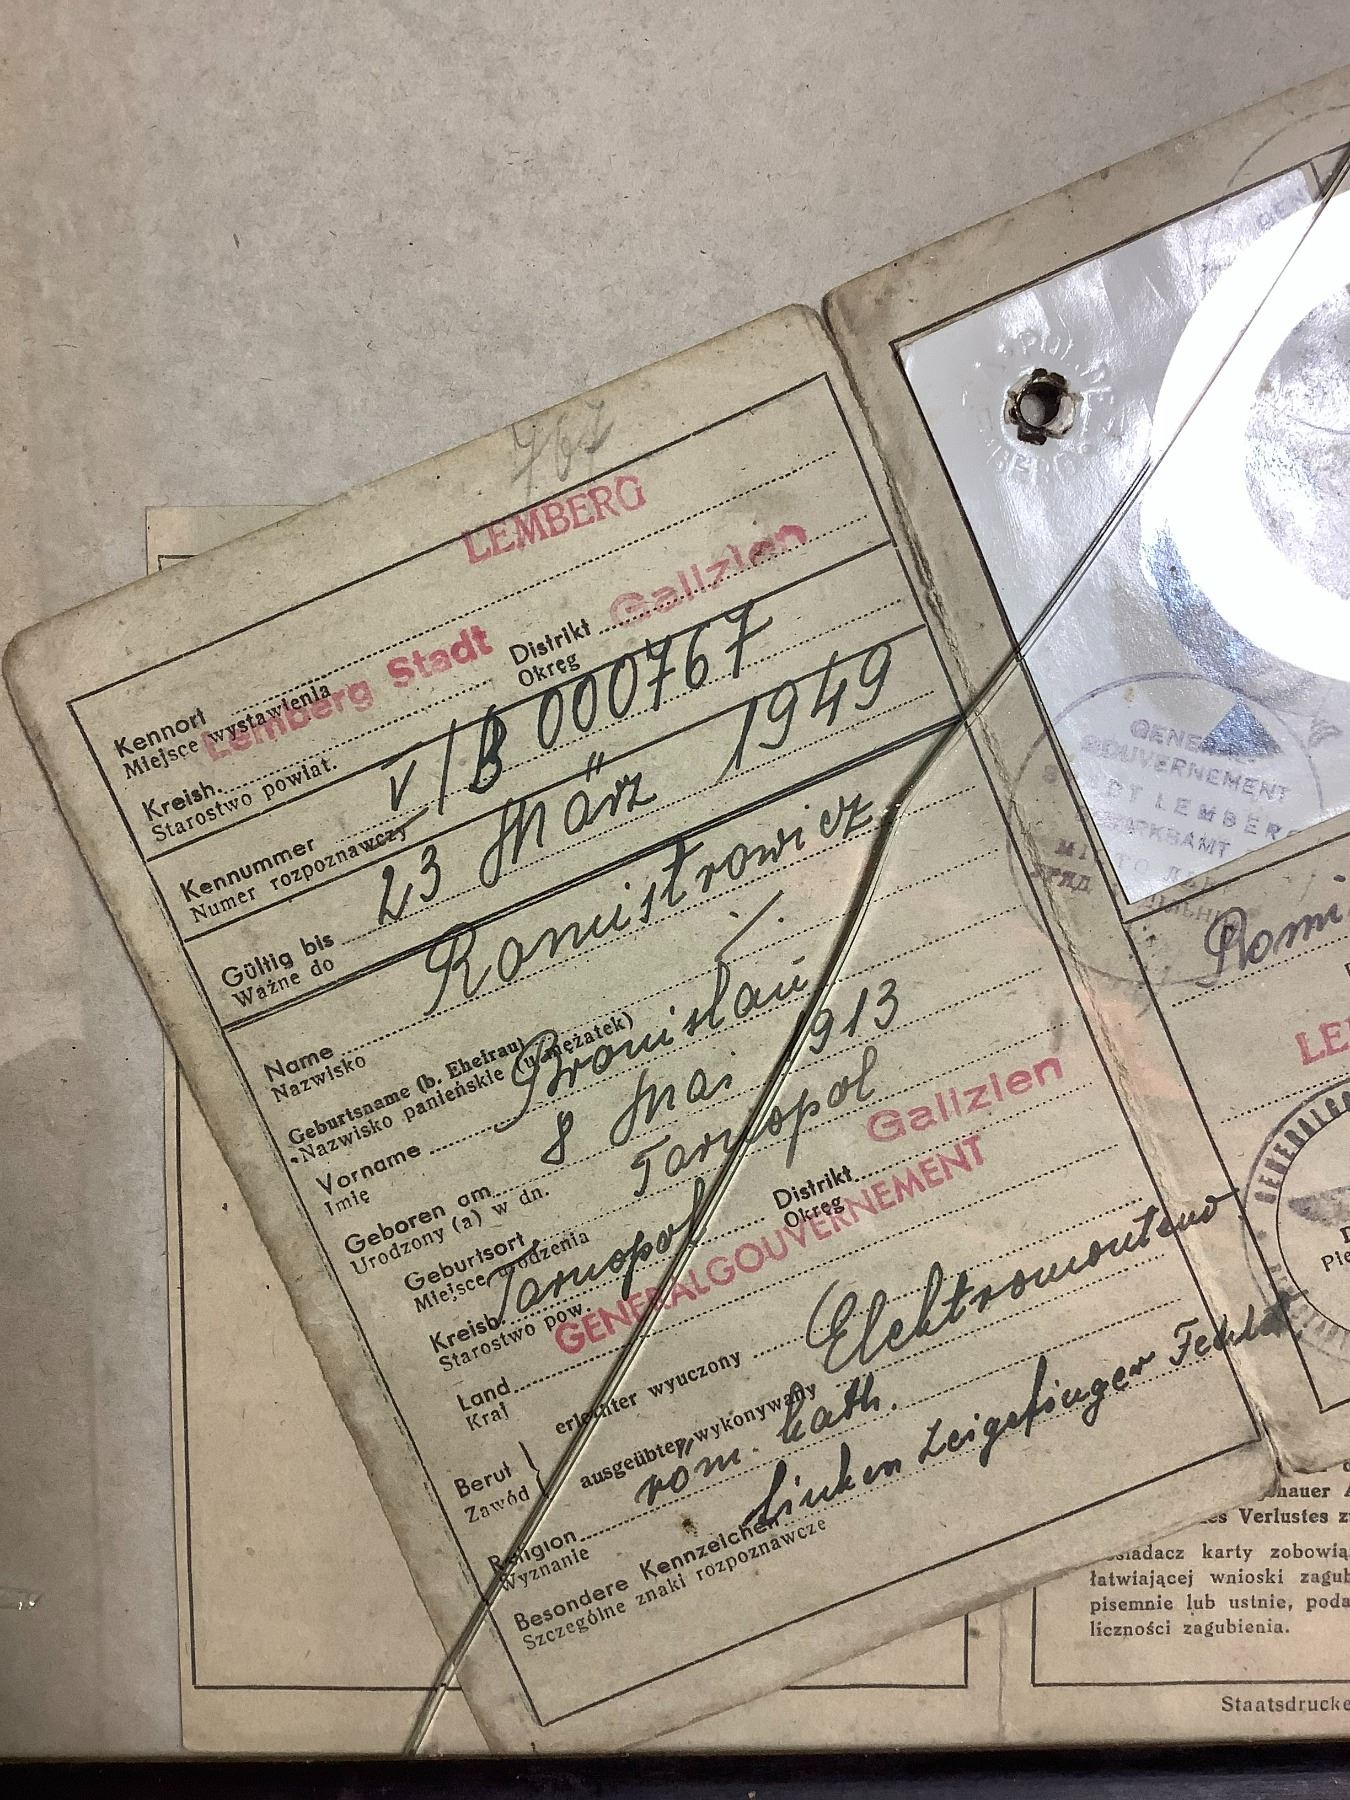 767
LEMBERG
Kennort
Miejsce wystawienia
Lemberg Stadt Distrikt Galizien
Kreish. Okręg
Starostwo powiat.
Kennummer V/B 000767
Numer rozpoznawczy
Gültig bis 23 März 1949
Ważne do
Name
Nazwisko
Geburtsname (b. Ehefrau)
Nazwisko panieńskie (u mężatek)
Vorname Bronislau
Imię
Geboren am 8 Mai 1913
Urodzony (a) w dn.
Geburtsort Tarnopol
Miejsce urodzenia
Kreish. Tarnopol Distrikt Galizien
Starostwo pow. Okręg
Land GENERALGOUVERNEMENT
Kraj
Beruf erlernter wyuczony Elektromonteur
Zawód ausgeübter wykonywany
Religion röm. kath.
Wyznanie
Besondere Kennzeichen Linken Zeigefinger
Szczególne znaki rozpoznawcze
GENERAL
GOUVERNEMENT
STADT LEMBERG
Romi
LE
GENERALGO
Pie
hauer A
es Verlustes z
siadacz karty zobowią
łatwiającej wnioski zagub
pisemnie lub ustnie, poda
liczności zagubienia.
Staatsdrucke